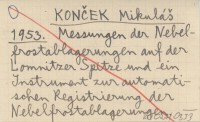 KONČEK Mikuláš
1953. Messungen der Nebel-
frostablagerungen auf der
Lomnitzer Spitze und ein
Instrument zur automati-
schen Registrierung der
Nebelfrostablagerung